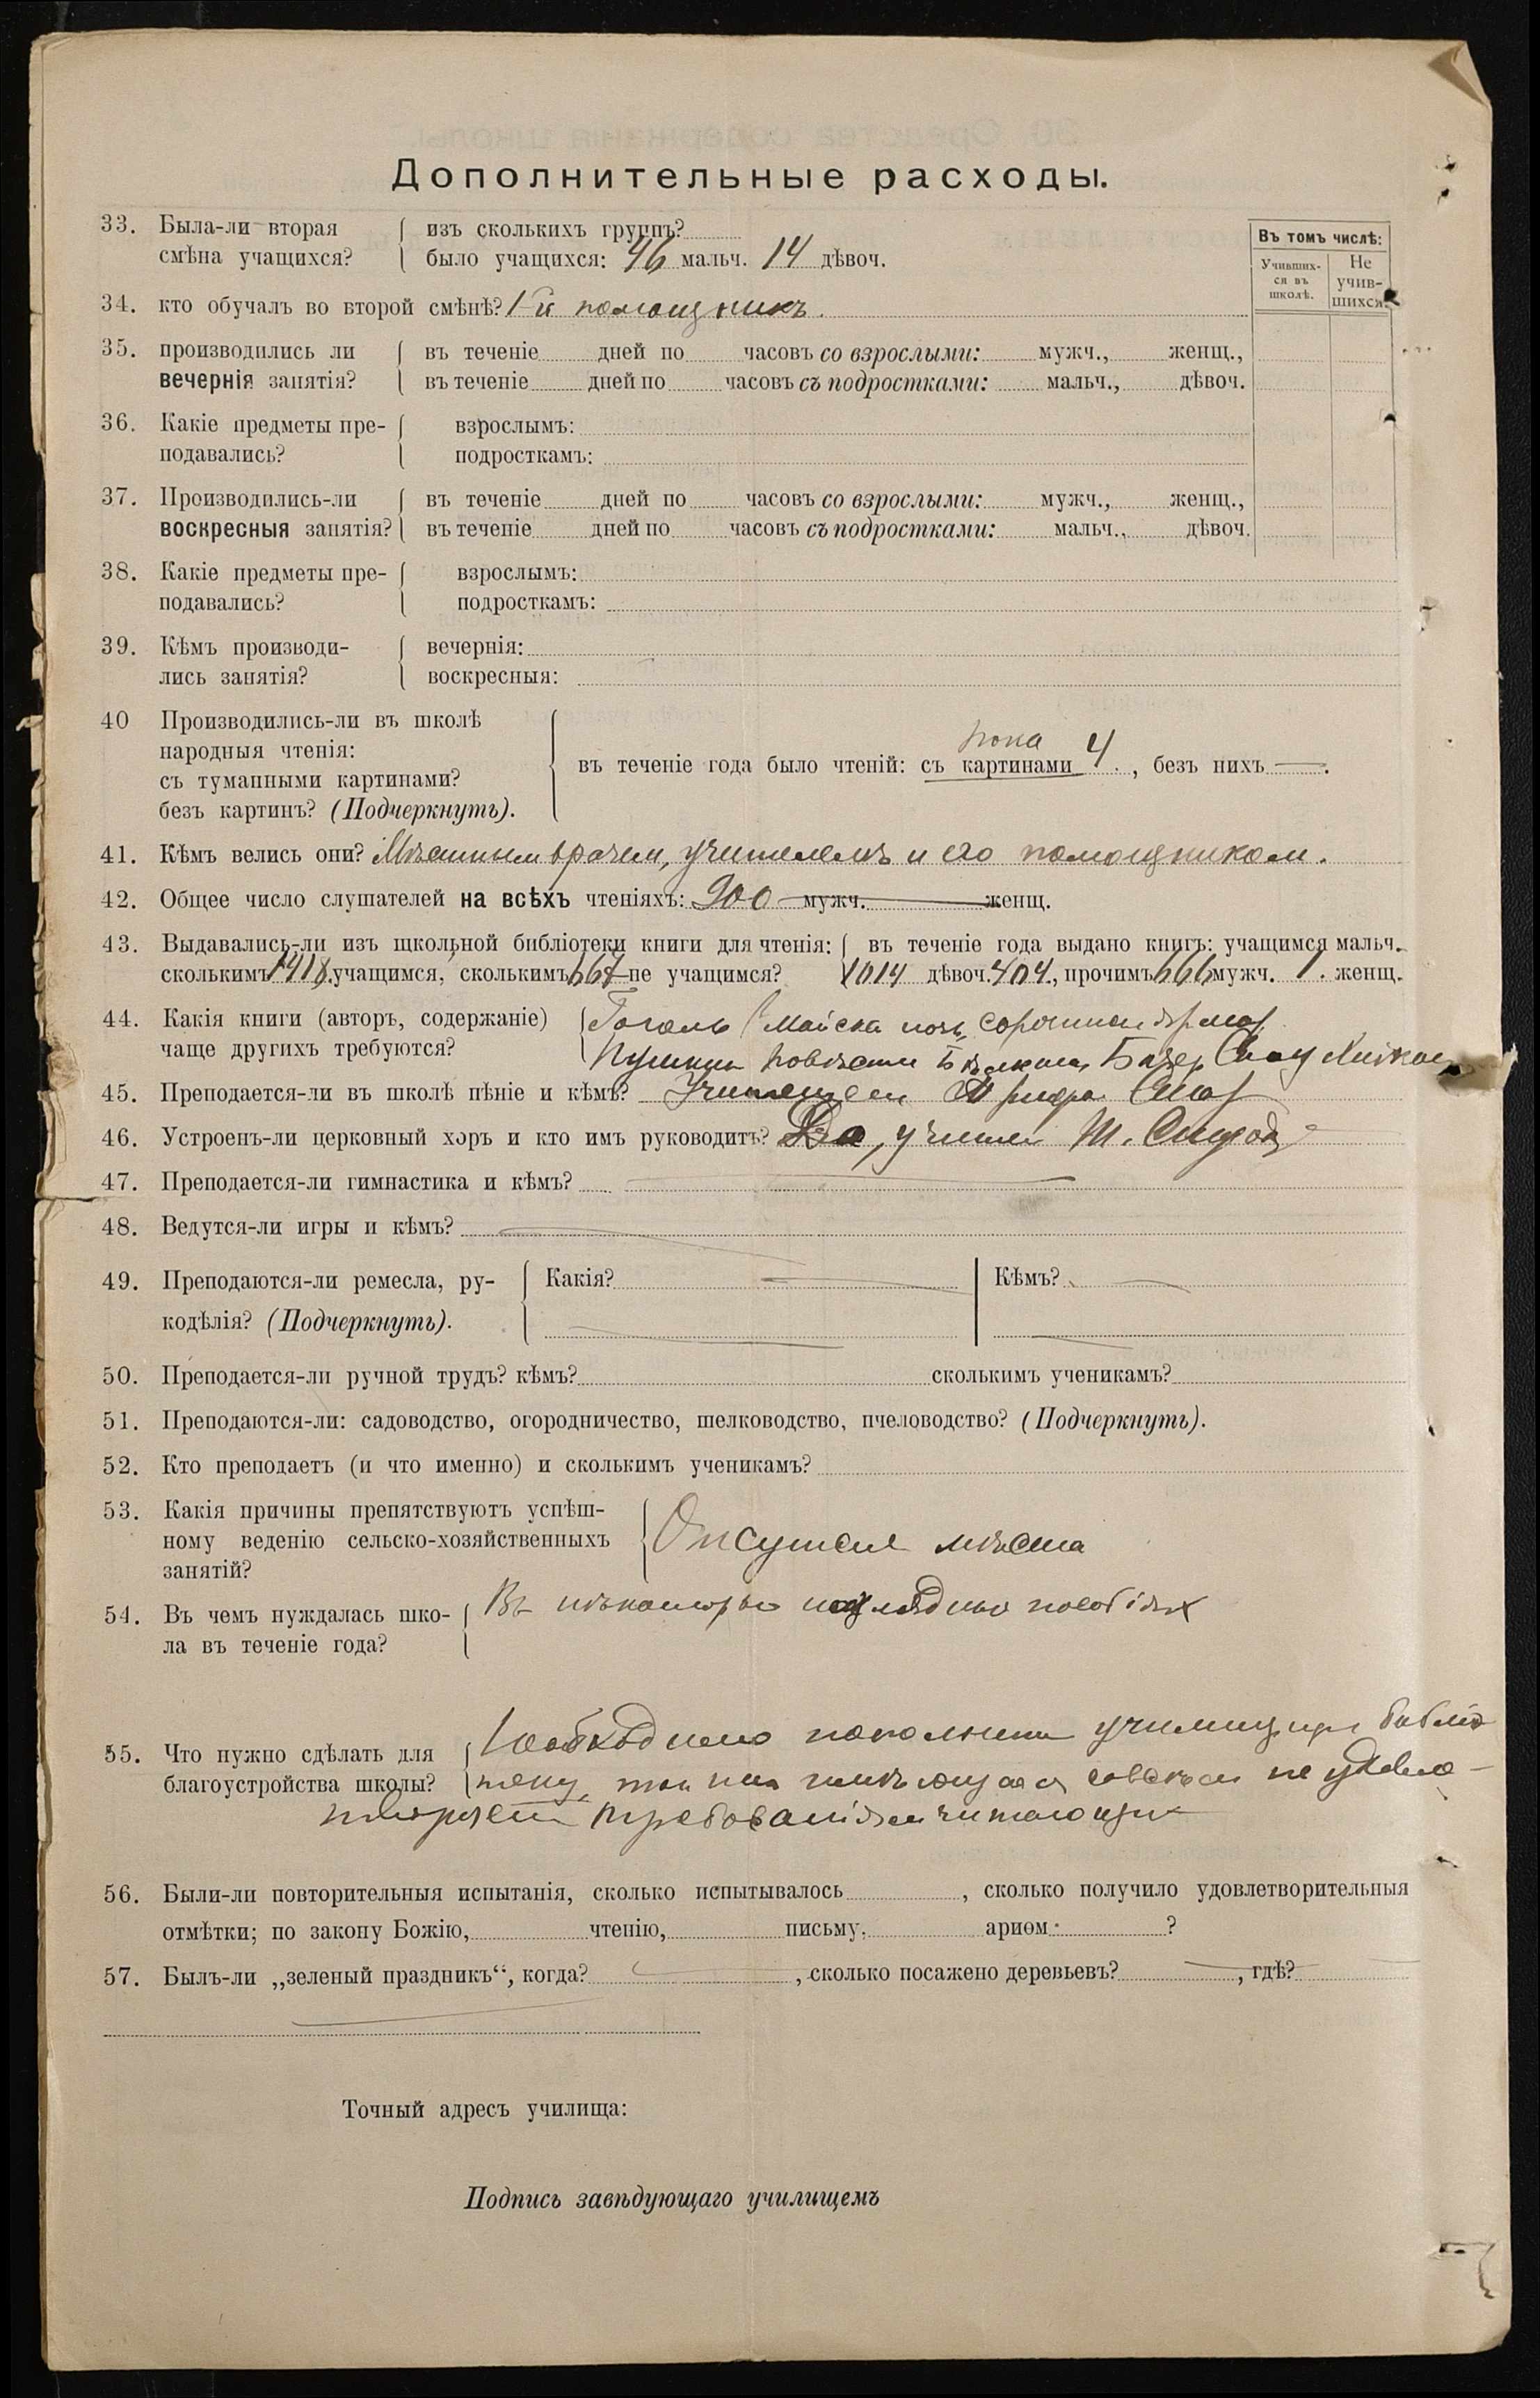 Дополнительные расходы.
33. Была-ли вторая { изъ сколькихъ группъ?
смѣна учащихся? { было учащихся: 46 мальч. 14 дѣвоч.
Въ томъ числѣ:
Учивших-ся въ школѣ. Не учив-шихся.
34. кто обучалъ во второй смѣнѣ? 1-й помощникъ.
35. производились ли { въ теченіе дней по часовъ со взрослыми: мужч., женщ.,
вечернія занятія? { въ теченіе дней по часовъ съ подростками: мальч., дѣвоч.
36. Какіе предметы пре- { взрослымъ:
подавались? { подросткамъ:
37. Производились-ли { въ теченіе дней по часовъ со взрослыми: мужч., женщ.,
воскресныя занятія? { въ теченіе дней по часовъ съ подростками: мальч., дѣвоч.
38. Какіе предметы пре- { взрослымъ:
подавались? { подросткамъ:
39. Кѣмъ производи- { вечернія:
лись занятія? { воскресныя:
40 Производились-ли въ школѣ
народныя чтенія:
пока
съ туманными картинами? { въ теченіе года было чтеній: съ картинами 4, безъ нихъ —.
безъ картинъ? (Подчеркнуть).
41. Кѣмъ велись они? Мѣстным врачем, учителемъ и его помощником.
42. Общее число слушателей на всѣхъ чтеніяхъ: 900 мужч. женщ.
43. Выдавались-ли изъ школьной библіотеки книги для чтенія: { въ теченіе года выдано книгъ: учащимся мальч.
сколькимъ 1418 учащимся, сколькимъ 667 не учащимся? 1014 дѣвоч. 404, прочимъ 666 мужч. 1. женщ.
44. Какія книги (авторъ, содержаніе) { Гоголь Майска ночь,
чаще другихъ требуются? { Пушкин Повѣсти
45. Преподается-ли въ школѣ пѣніе и кѣмъ? Учителем
46. Устроенъ-ли церковный хоръ и кто имъ руководитъ? Да,
47. Преподается-ли гимнастика и кѣмъ?
48. Ведутся-ли игры и кѣмъ?
49. Преподаются-ли ремесла, ру- { Какія? Кѣмъ?
кодѣлія? (Подчеркнуть).
50. Преподается-ли ручной трудъ? кѣмъ? сколькимъ ученикамъ?
51. Преподаются-ли: садоводство, огородничество, шелководство, пчеловодство? (Подчеркнуть).
52. Кто преподаетъ (и что именно) и сколькимъ ученикамъ?
53. Какія причины препятствуютъ успѣш-
ному веденію сельско-хозяйственныхъ { мѣста
занятій?
54. Въ чемъ нуждалась шко- { Въ пособіях
ла въ теченіе года?
55. Что нужно сдѣлать для { Необходимо библіо
благоустройства школы? { теку, так как имѣющаяся совсѣм не удовле-
требованіям читающих
56. Были-ли повторительныя испытанія, сколько испытывалось , сколько получило удовлетворительныя
отмѣтки; по закону Божію, чтенію, письму, ариѳм. ?
57. Былъ-ли „зеленый праздникъ“, когда? , сколько посажено деревьевъ? —, гдѣ?
Точный адресъ училища:
Подпись завѣдующаго училищемъ